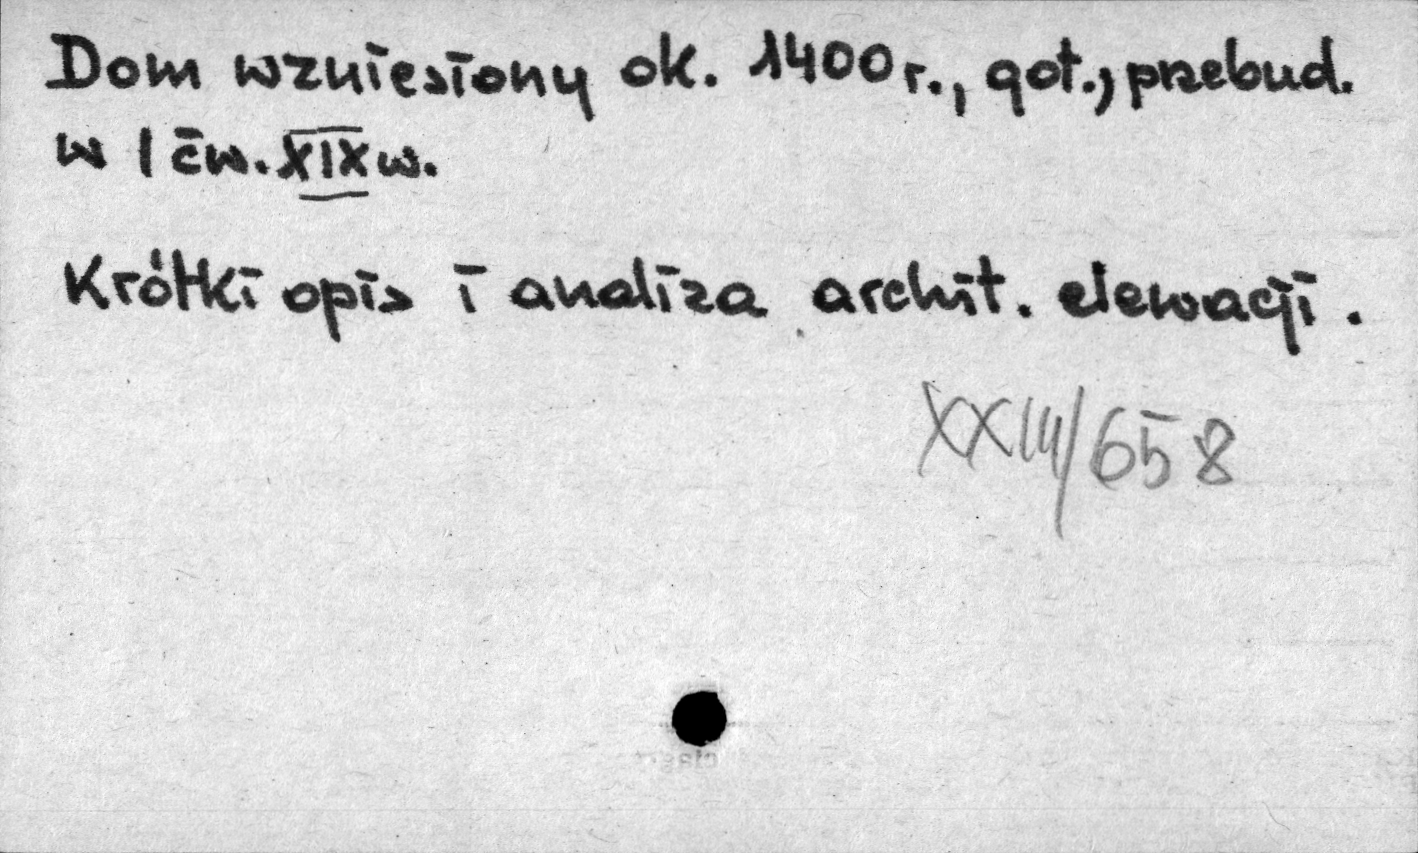 Dom wzniesiony ok. 1400 r., got., przebud.
w I ćw. XIX w.
Krótki opis i analiza archit. elewacji.
XXIII/658